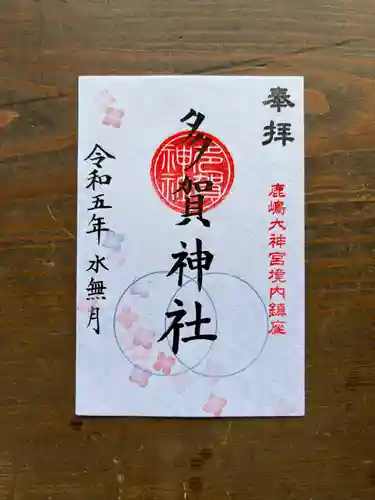 奉拝
鹿嶋大神宮境内鎮座
多賀神社
令和五年 水無月